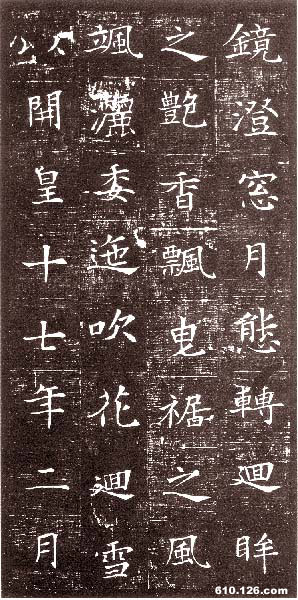 鏡澄窓月態轉迴眸
之艷香飄曳裾之風
颯灑委迤吹花迴雪
以開皇十七年二月
610.126.com